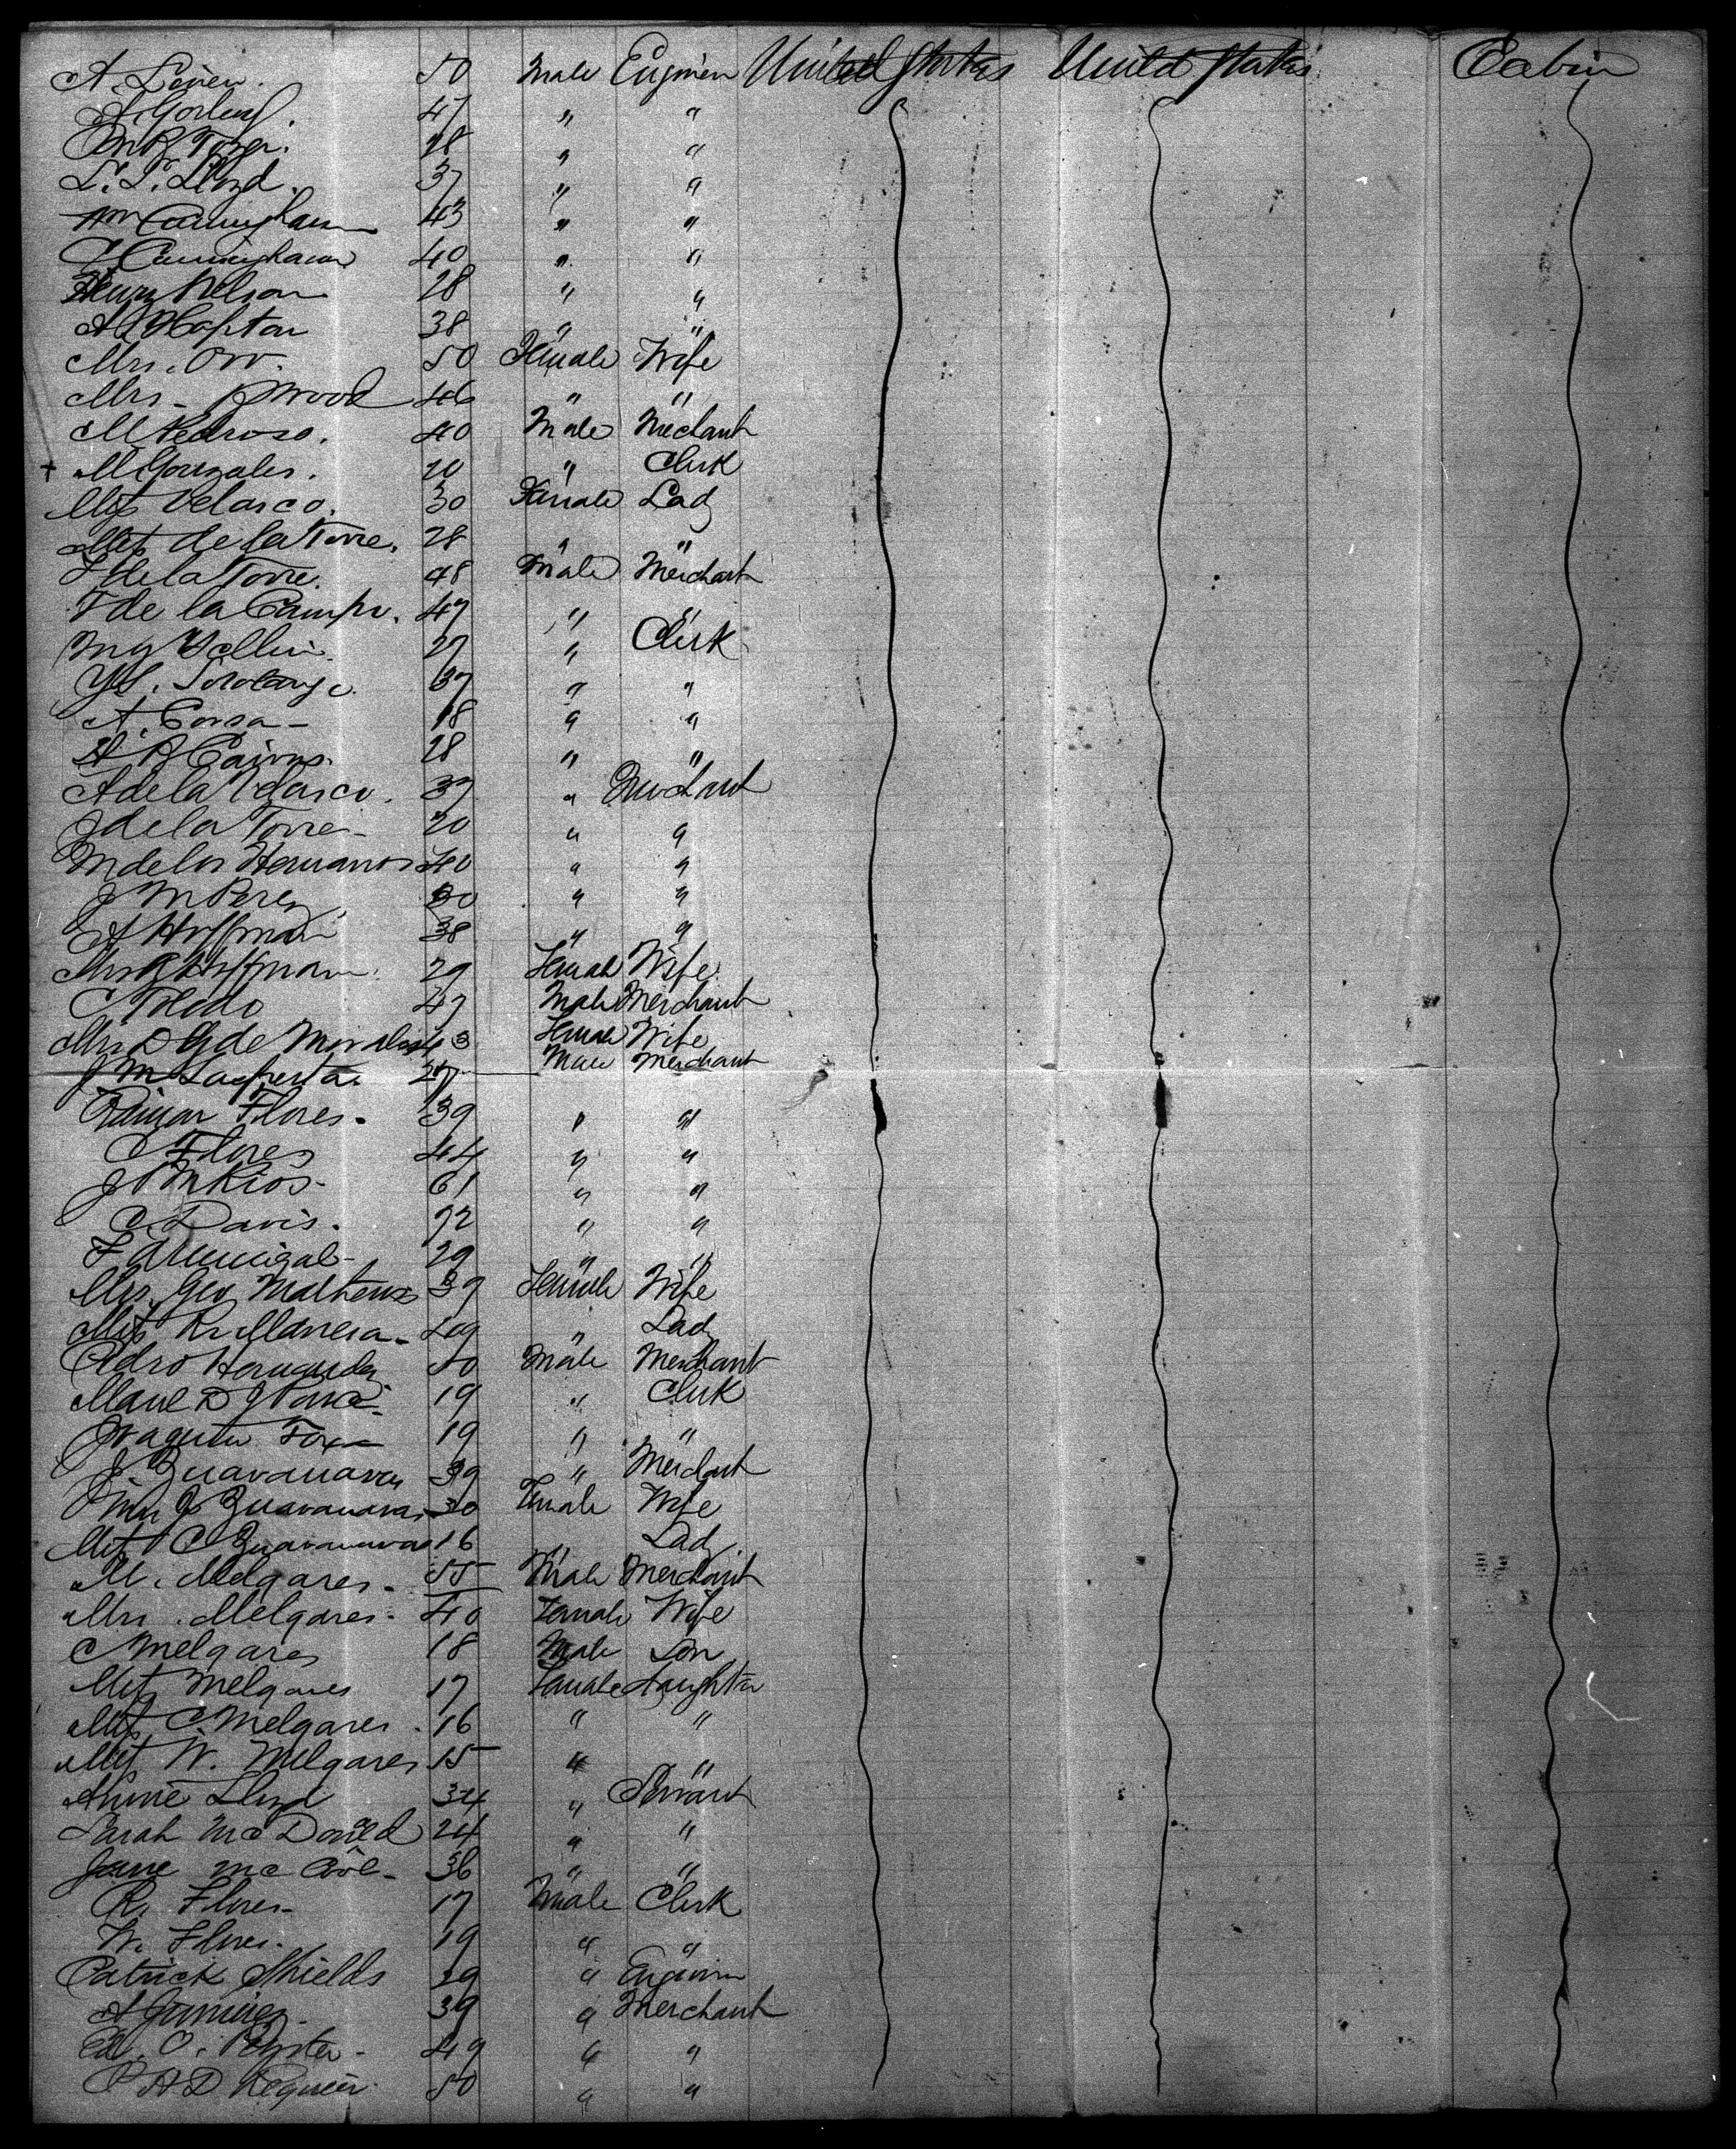 A. 50 Male Engineer United States United States Cabin
47 " "
28 " "
L. L. Lloyd. 37 " "
Wm Cunningham 43 " "
C Cunningham 40 " "
Henry Nelson 28 " "
38 " "
Mrs. Orr. 50 Female Wife
Mrs - Wood 46 " "
M Pedroso. 40 Male Mechant
+ M Gonzales. 20 " Clerk
Miss Velasco. 30 Female Lady
Miss de la Torre. 28 " "
J de la Torre. 48 Male Merchant
F de la Campa. 47 " "
27 " Clerk
37 " "
A. Corsa - 18 " "
R Cairns. 28 " "
A de la Velasco. 37 " Merchant
J de la Torre - 20 " "
M de los Hermanos 40 " "
J M Perez 30 " "
A Hoffman 38 " "
Mrs A Hoffman. 29 Female Wife
C Toledo 47 Male Merchant
Mrs D G de Morales 43 Female Wife
J M 27 Male Merchant
Ramon Flores - 39 " "
C Flores 44 " "
J M Rios - 61 " "
C. Davis. 72 " "
29 " "
Mrs. Geo Mathews 39 Female Wife
Miss R. - 49 " Lady
Pedro Hernandez 50 Male Merchant
19 " Clerk
19 " "
J. Zuavanavar 39 " Merchant
Mrs J Zuavanavar 30 Female Wife
Miss C Zuavanavar 16 " Lady
M. Melgares - 55 Male Merchant
Mrs. Melgares - 40 Female Wife
C Melgares 18 Male Son
Miss Melgares 17 Female daughter
Miss C Melgares. 16 " "
Miss W. Melgares 15 " "
Annie Lloyd 34 " Servant
Sarah McDonald 24 " "
Jane McCool - 36 " "
R. Flores - 17 Male Clerk
W. Flores. 19 " "
Patrick Shields 29 " Engineer
A 39 " Merchant
Ed. O. - 49 " "
50 " "